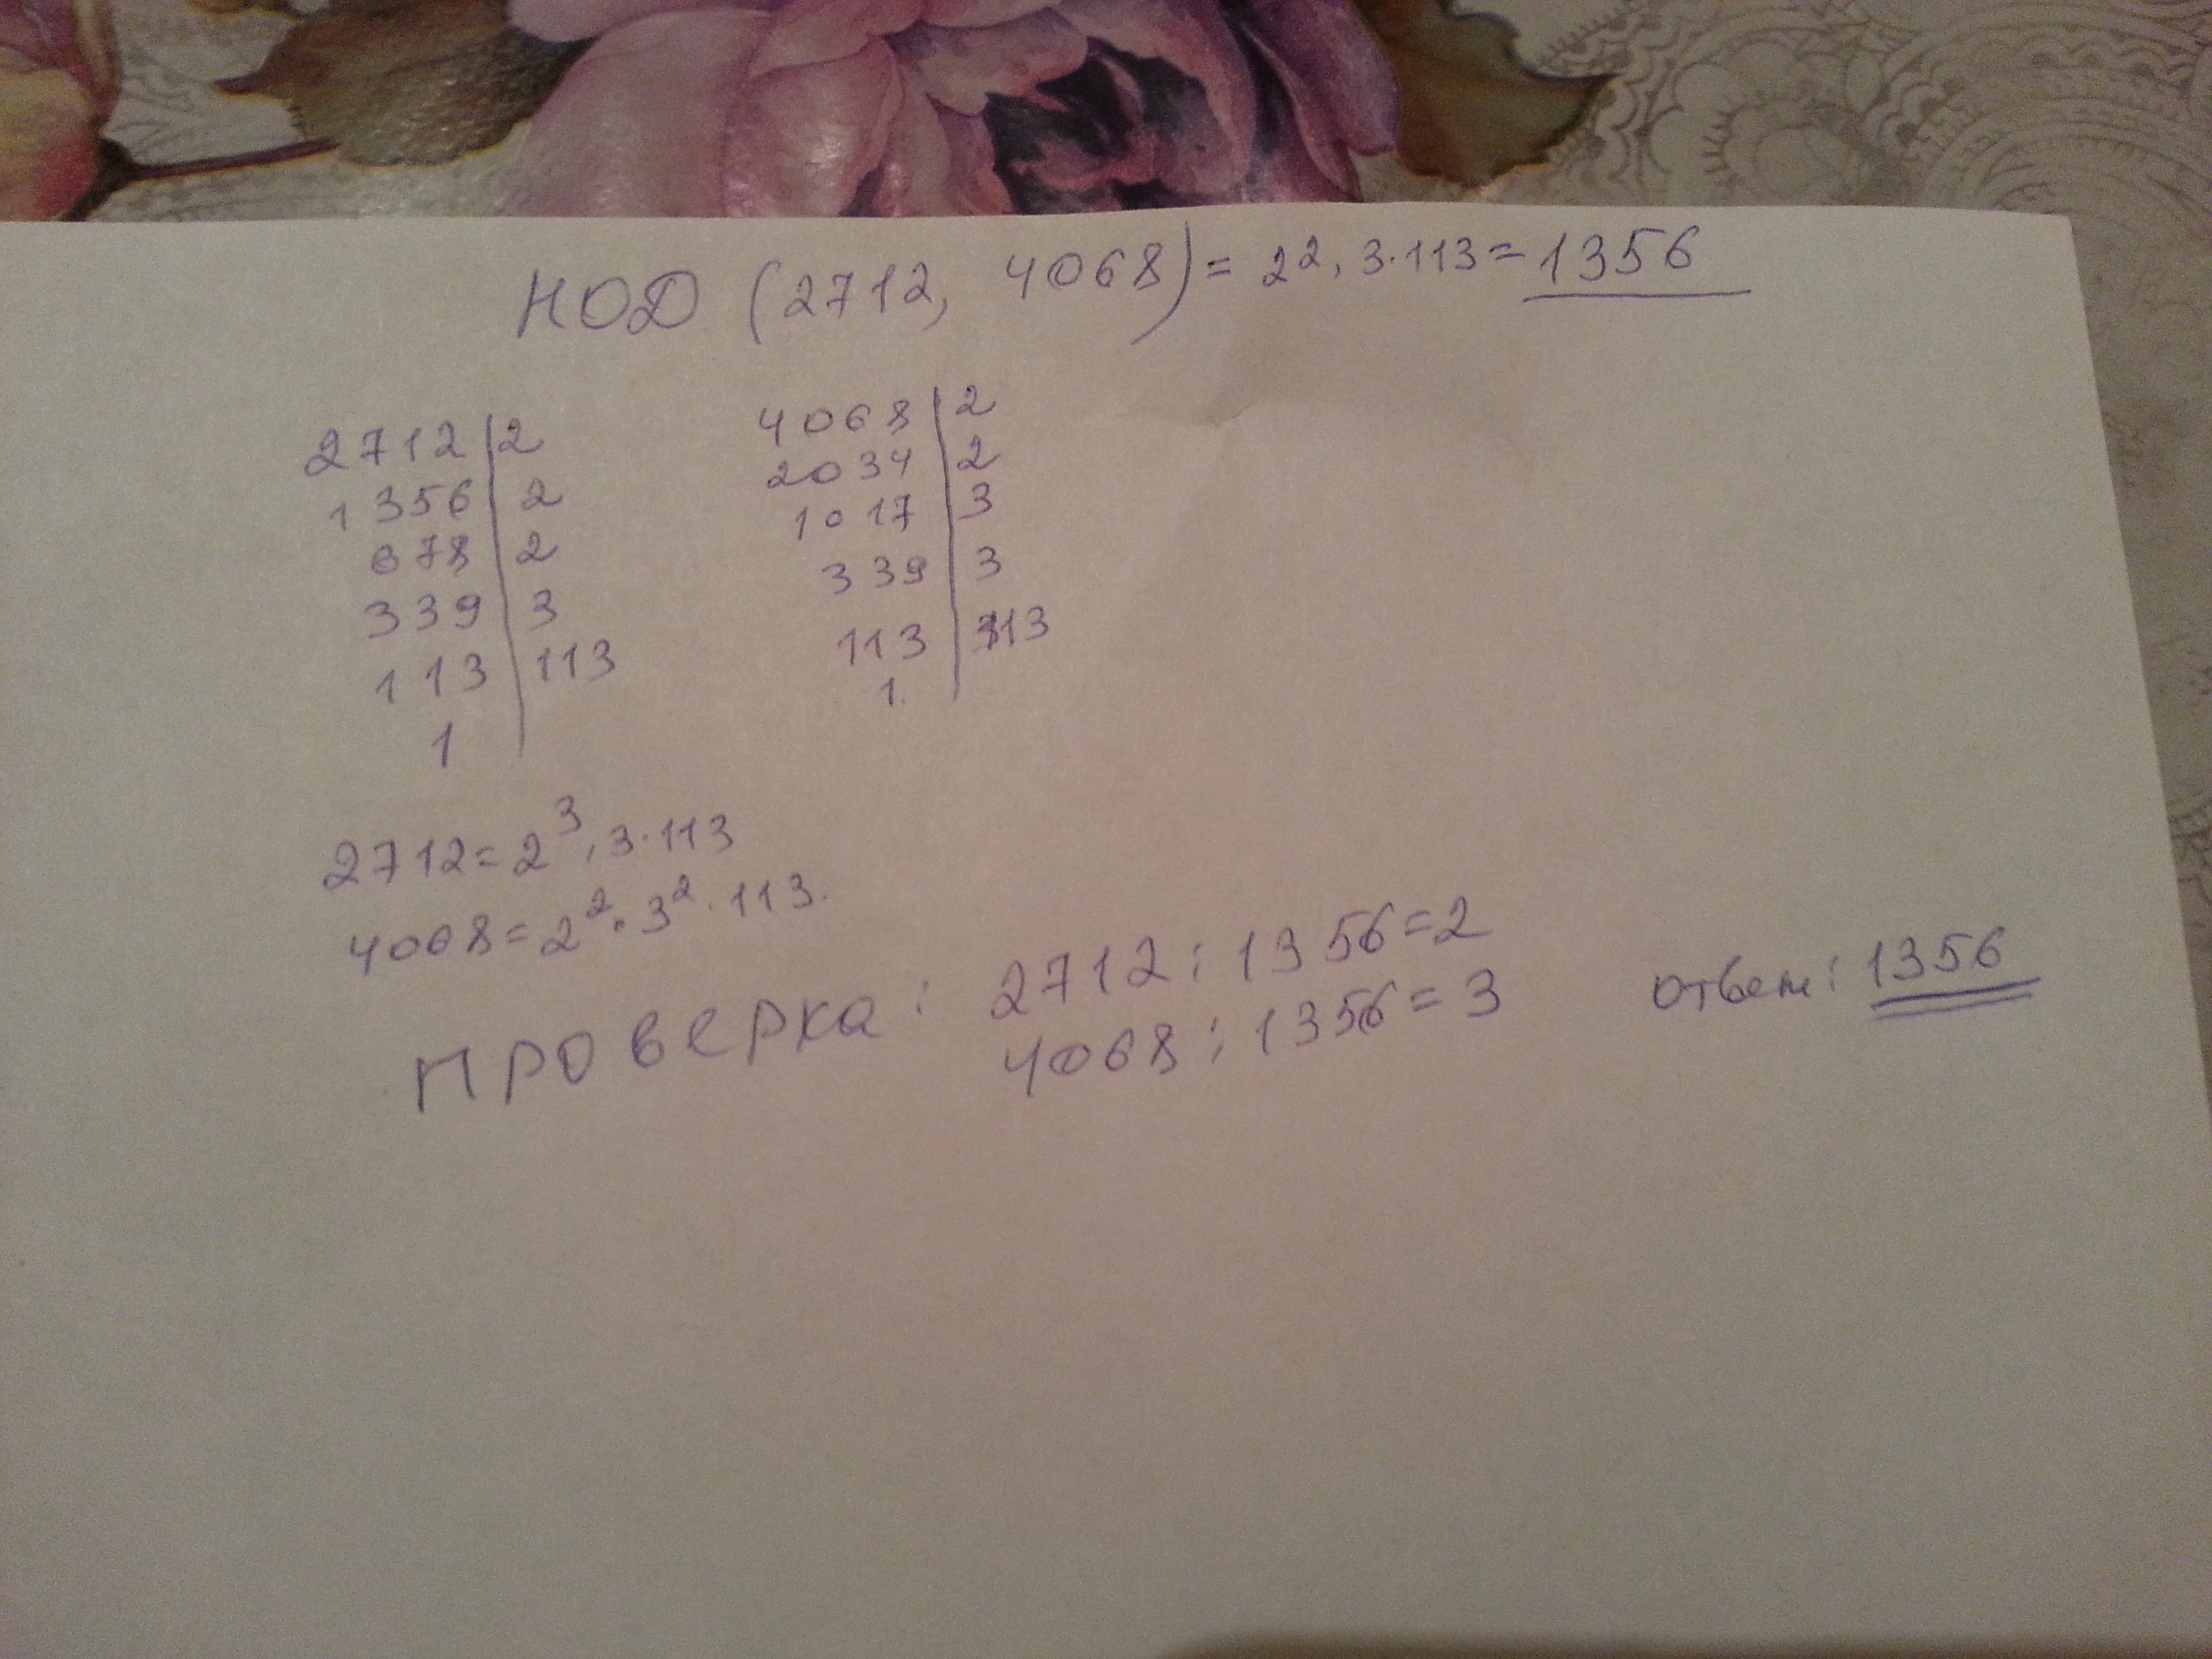 НОД (2712, 4068) = 2², 3·113 = 1356
2712 | 2
1356 | 2
678 | 2
339 | 3
113 | 113
1
4068 | 2
2034 | 2
1017 | 3
339 | 3
113 | 113
1.
2712 = 2³, 3·113
4068 = 2²·3²·113.
Проверка: 2712 : 1356 = 2
4068 : 1356 = 3
ответ: 1356